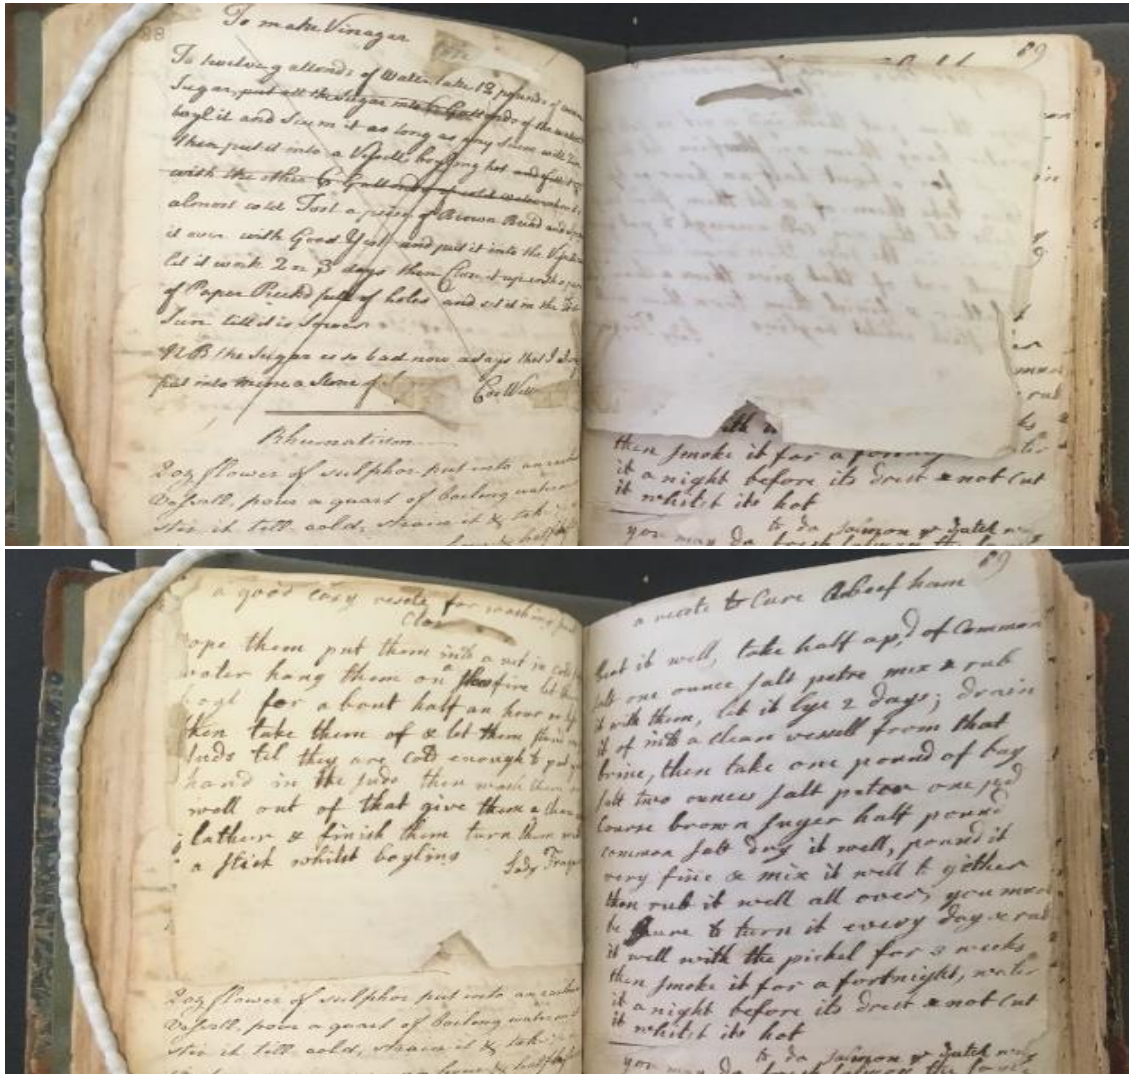 88
To make Vinagar
To twelve gallonds of Water take 12 pounds of
Sugar, put all the Sugar into 6 Gallonds of the water
boyl it and Scum it as long as any Scum will
then put it into a Vessell boyling hot and fill it
with the other 6 Gallonds of cold water when
almost cold Tost a peice of Brown Bread and
it over with Good Yest and put it into the
let it work 2 or 3 days then Close it up with a
of Paper Prickd full of holes and set it in the
Sun till it is Sower
NB the Sugar is so bad now a days that I
put into mine a Stone of
Rhumatism
2 oz flower of sulphor put into an
Vessall, pour a quart of boiling water
stir it till cold, strain it &
89
then smoke it for a
it a night before its drest & not cut
it whilst its hot
to do salmon ye Dutch way
you may do
a good easy receite for washing
ope them put them into a net in cold
water hang them on a fire let
boyl for about half an hour
then take them of & let them
suds til they are cold enough to put
hand in the suds then wash them
well out of that give them a clean
lather & finish them turn them with
a stick whilst boyling
Lady
2 oz flower of sulphor put into an
Vessall, pour a quart of boiling water
stir it till cold, strain it &
89
a receite to Cure a Beef ham
beat it well, take half a pd of Common
salt one ounce salt petre mix & rub
it with them, let it lye 2 days; drain
it of into a clean vessell from that
brine, then take one pound of bay
salt two ounces salt peter one pd
Course brown suger half pound
common salt dry it well, pound it
very fine & mix it well to gether
then rub it well all over, you must
be sure to turn it every day & rub
it well with the pickel for 3 weeks
then smoke it for a fortnight, water
it a night before its drest & not cut
it whilst its hot
to do salmon ye Dutch way
you may do